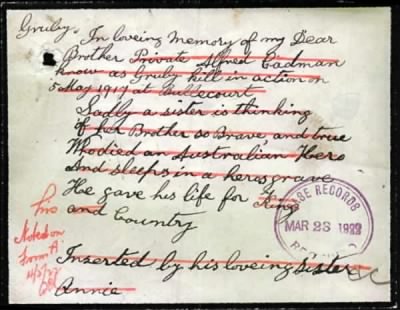 Gruby - In loveing Memory of my Dear
Brother Private Alfred Cadman
know as Gruby kill in action on
5 May 1917 at Bullecourt
Sadly a sister is thinking
Of her Brother so Brave, and true
Who died an Australian Hero
And sleeps in a heros grave
He gave his life for King
and Country
Inserted by his loveing Sister
Annie
BASE RECORDS
MAR 23
Noted on
Form A